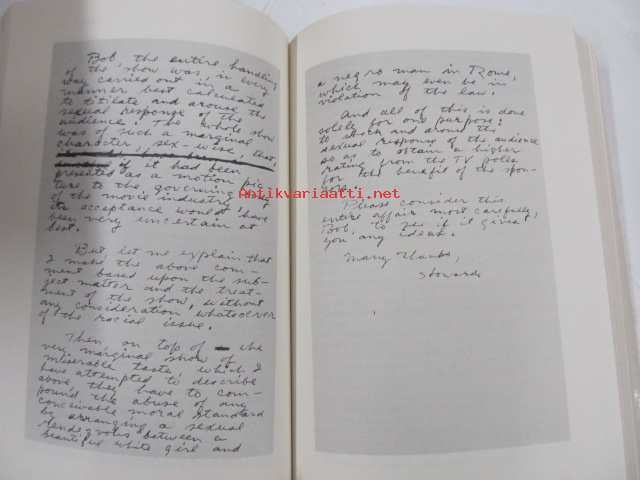 Bob, the entire handling
of the show was, in every
way carried out in a
manner best calculated
to titilate and arouse the
sexual response of the
audience. The whole show
was of such a marginal
character, sex-wise, that,
if it had been
presented as a motion pic
ture to the governing body
of the movie industry, 
its acceptance would have
been very uncertain at
best.
But let me explain that
I make the above com-
ment based upon the sub-
ject matter and the treat-
ment of the show, without
any consideration whatsoever
of the racial issue.
Then on top of the
very marginal show of
miserable taste, which I
have attempted to describe
above they have to com-
pound the abuse of any
conceivable moral standard
by arranging a sexual
rendezvous between a
beautiful white girl and
a negro man in Rome,
which may even be in
violation of the law.
And all of this is done
solely for one purpose:
to shock and arouse the
sexual response of the audience
so as to obtain a higher
rating from the TV polls
for the benefit of the spon-
Antikvariaatti.net
Please consider this
entire affair most carefully,
Bob, to see if it gives
you any ideas.
Many thanks,
Howard